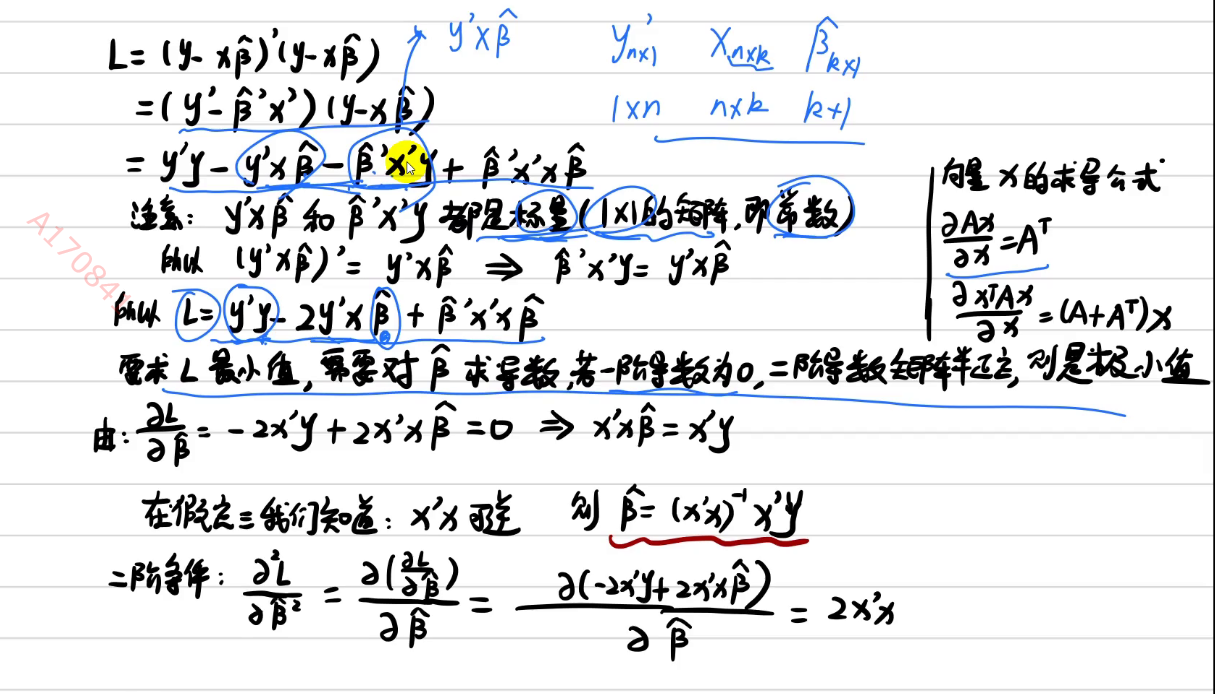 L = (y - xβ̂)'(y - xβ̂)
y'xβ̂
y'ₙₓ₁ Xₙₓₖ β̂ₖₓ₁
= (y' - β̂'x')(y - xβ̂)
1×n n×k k+1
= y'y - y'xβ̂ - β̂'x'y + β̂'x'xβ̂
注意: y'xβ̂ 和 β̂'x'y 都是标量(1×1的矩阵,即常数)
所以 (y'xβ̂)' = y'xβ̂ ⇒ β̂'x'y = y'xβ̂
所以 L = y'y - 2y'xβ̂ + β̂'x'xβ̂
向量x的求导公式
∂Ax/∂x = Aᵀ
∂xᵀAx/∂x = (A+Aᵀ)x
要求L最小值,需要对β̂求导数,若一阶导数为0,二阶导数矩阵半正定,则是极小值
由: ∂L/∂β̂ = -2x'y + 2x'xβ̂ = 0 ⇒ x'xβ̂ = x'y
在假定三我们知道: x'x可逆 则 β̂ = (x'x)⁻¹x'y
二阶条件: ∂²L/∂β̂² = ∂(∂L/∂β̂)/∂β̂ = ∂(-2x'y + 2x'xβ̂)/∂β̂ = 2x'x